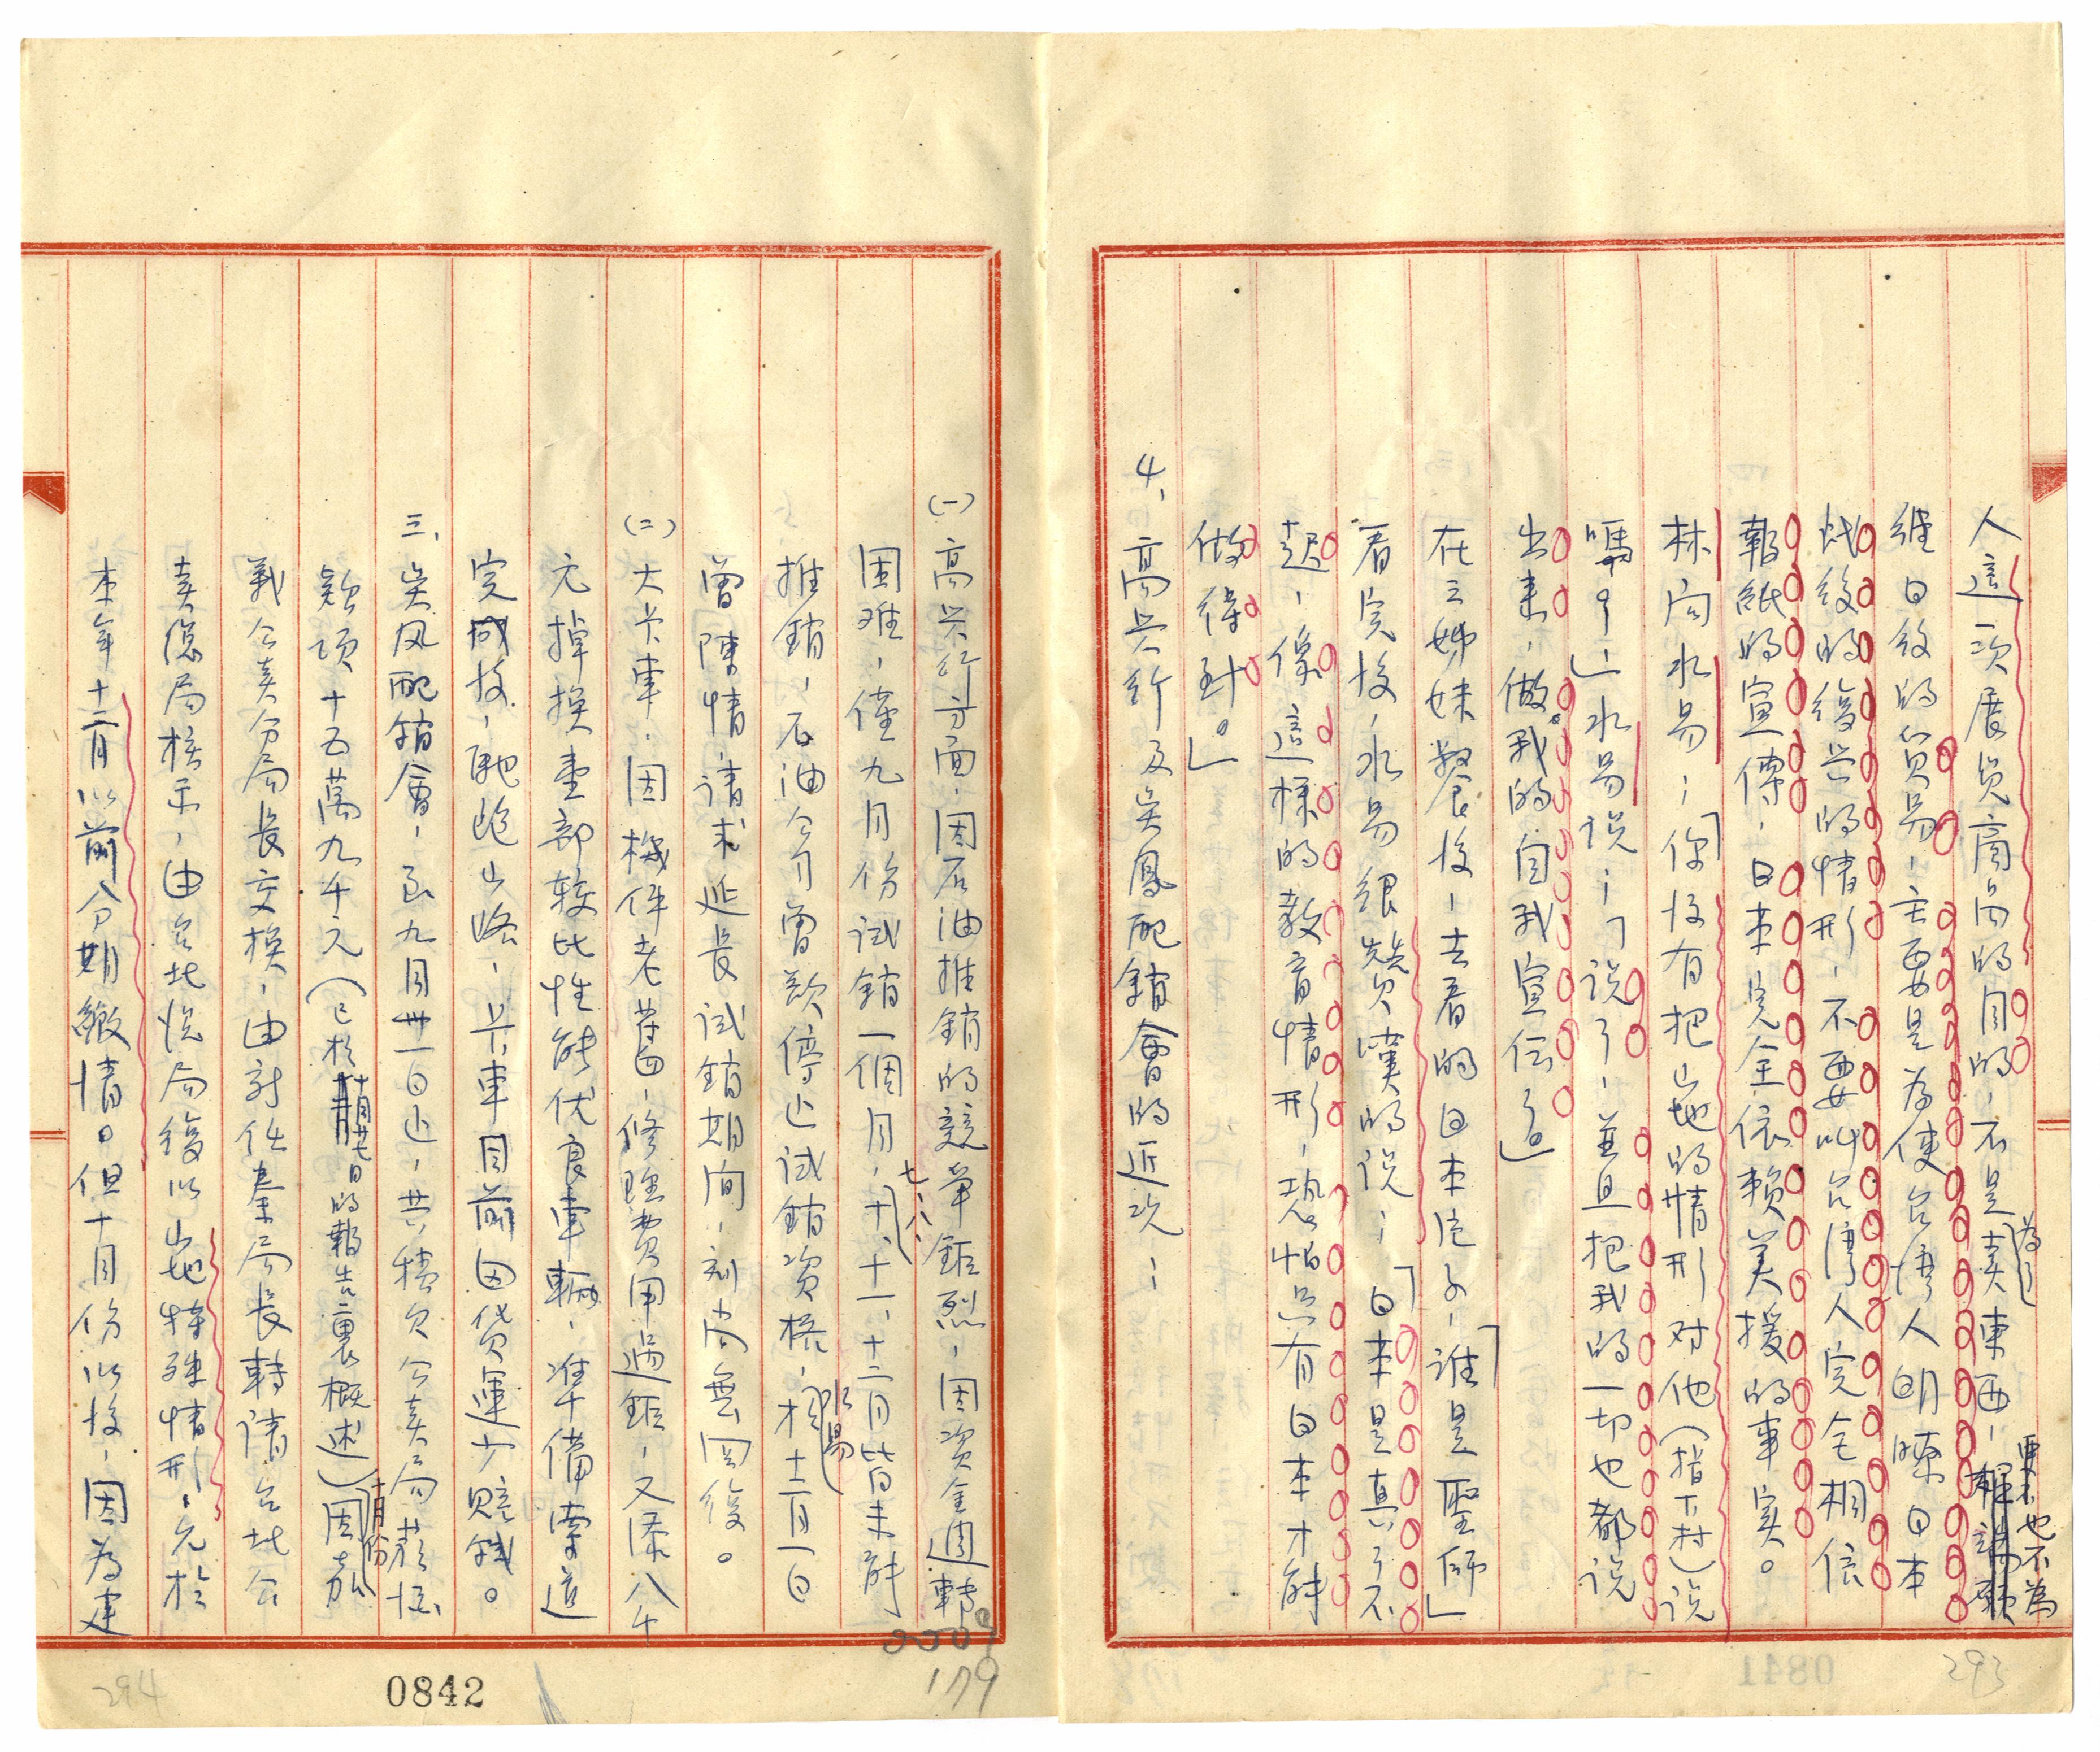 人這一次展覽商品的目的，不是為了賣東西，
要不也不為
維日後的貿易，主要是為使台湾人明瞭日本
战後的復兴的情形，不要叫台湾人完全相信
報紙的宣傳，日本完全依賴美援的事実。
林向水易；「你没有把山地的情形对他（指下村）说
嗎？」水易说；「说了，並且把我的一切也都说
出来，做我的自我宣伝了」
在三姊妹餐後，去看的日本片子，「誰是聖師」
看完後，水易很讃嘆的说；「日本是真了不
起，像這樣的教育情形，恐怕只有日本才能
做得到。」
4、高兴行及吳鳳配銷會的近況：
(一)高兴行方面，因石油推銷的競爭鉅烈，因資金週轉
困难，僅九月份試銷一個月，七、八、十、十一、十二月皆未能
推銷，石油公司曾欲停止試銷資格，水易於十二月一日
曾陳情，請求延長試銷期间，刻尚無回復。
(二)大卡車，因機件老舊，修理費用過鉅，又添八千
元掉換壹部較比性能优良車輛，準備牽道
完成後，馳跑山路，卡車目前因貨運少賠錢。
三、吳凤配銷會，至九月卅一日止，共積欠公賣局菸酒
款項十五萬九千元（已於十月廿七日的報告裏概述）十月份因嘉
義公賣分局長交换，由新任秦局長轉請台北公
賣總局核示，由台北總局復以山地特殊情形，允於
本年十二月以前分期繳清。但十月份以後，因為建
0842
179
293
294